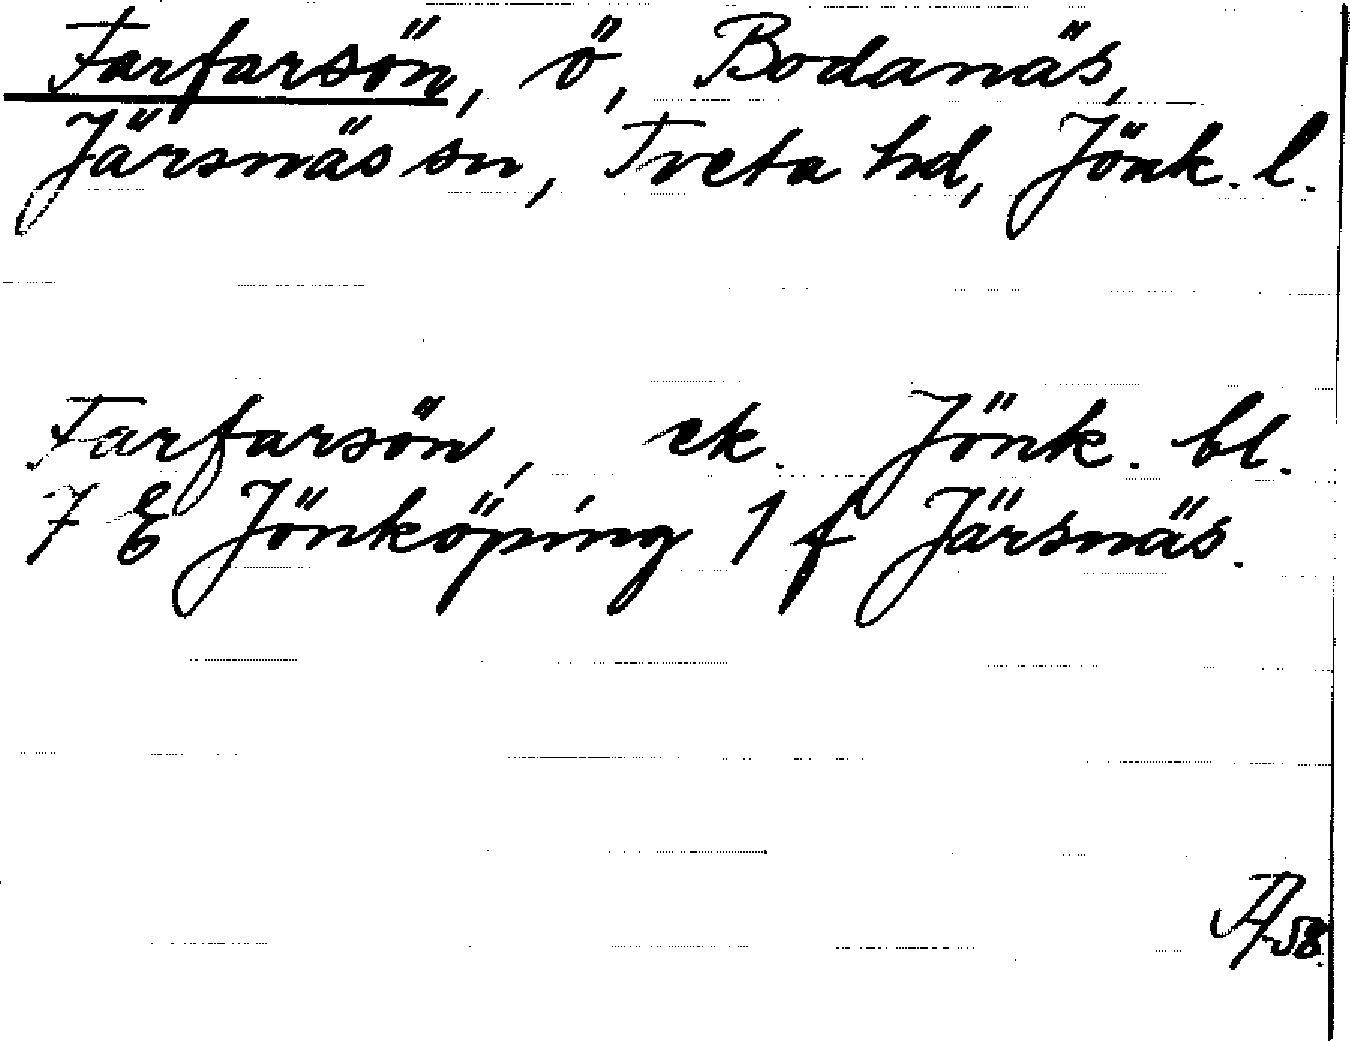 Farfarsön, ö, Bodanäs,
Järsnäs sn, Tveta hd, Jönk. l.
Farfarsön, ek. Jönk. bl.
7 E Jönköping 1 f Järsnäs.
58.